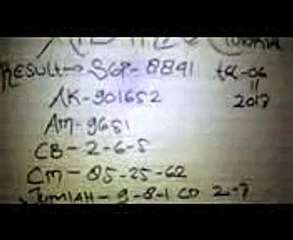 RESULT → SGP - 8891 tgl - 06
AK - 901652 2017
AM - 9651
CB - 2 - 6 - 5
CM - 85 - 25 - 62
JUMLAH - 9 - 8 - 1 CD 2 - 7